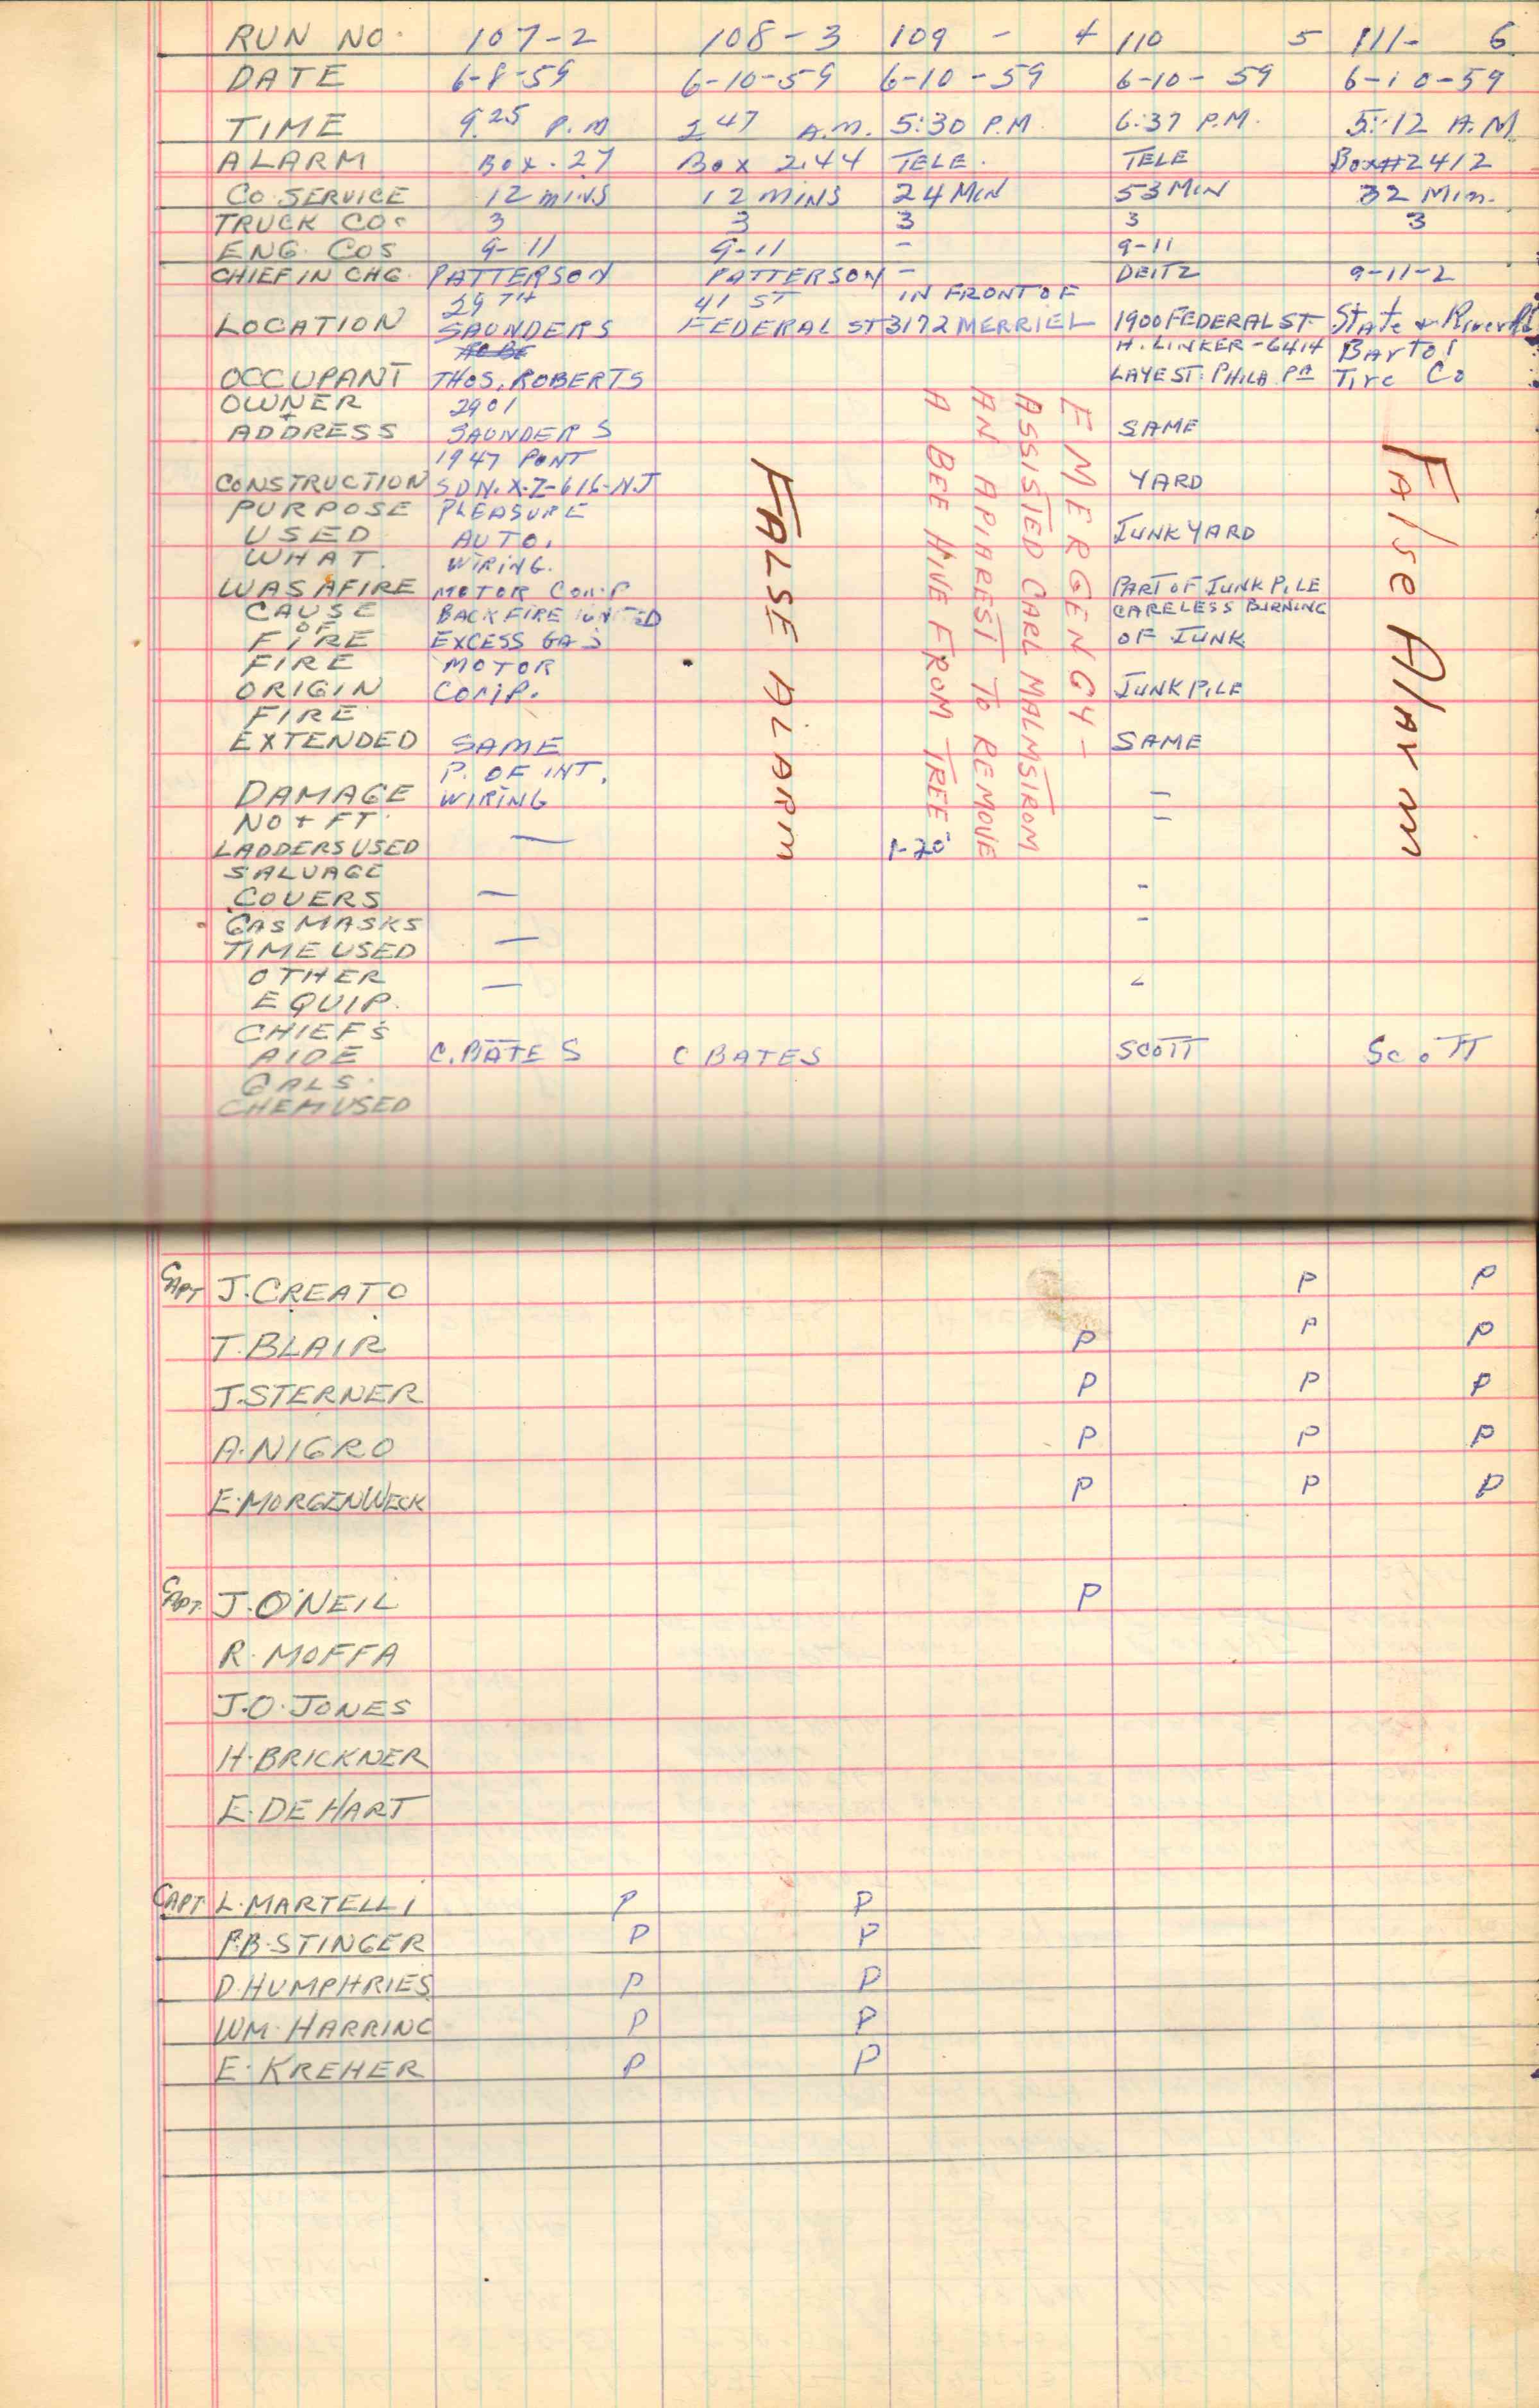 RUN NO. 107-2 108-3 109 - 4 110 5 111- 6
DATE 6-8-59 6-10-59 6-10-59 6-10-59 6-10-59
TIME 9.25 P.M 2 47 A.M. 5:30 P.M. 6:37 P.M. 5:12 A.M
ALARM BOX.27 BOX 244 TELE. TELE Box#2412
CO.SERVICE 12 MINS 12 MINS 24 MIN 53 MIN 32 Min.
TRUCK COS 3 3 3 3 3
ENG. COS 9-11 9-11 - 9-11
CHIEF IN CHG. PATTERSON PATTERSON - DEITZ 9-11-2
29 TH 41 ST IN FRONT OF
LOCATION SAUNDERS FEDERAL ST 3172 MERRIEL 1900 FEDERAL ST. State & River Rd
H. LINKER-6414 Bartol
OCCUPANT THOS. ROBERTS LAYE ST. PHILA. PA Tire Co
OWNER 2901
+
ADDRESS SAUNDERS SAME
1947 PONT
CONSTRUCTION SDN. X.Z-616-N.J YARD
PURPOSE PLEASURE
USED AUTO. JUNKYARD
WHAT WIRING.
WAS AFIRE MOTOR COMP PART OF JUNK PILE
CAUSE BACKFIRE IGNITED CARELESS BURNING
OF
FIRE EXCESS GAS OF JUNK
FIRE MOTOR
ORIGIN COMP. JUNKPILE
FIRE
EXTENDED SAME SAME
P. OF INT.
DAMAGE WIRING -
NO + FT. -
LADDERS USED — 1-20'
SALVAGE
COVERS — -
GAS MASKS -
TIME USED —
OTHER -
EQUIP. —
CHIEF'S
AIDE C. BATES C BATES SCOTT SCOTT
GALS.
CHEM USED
FALSE ALARM
EMERGENCY -
ASSISTED CARL MALMSTROM
AN APIAREST TO REMOVE
A BEE HIVE FROM TREE
False Alarm
CAPT J. CREATO P P
T. BLAIR P P P
J. STERNER P P P
A. NIGRO P P P
E. MORGENWECK P P P
CAPT. J. O'NEIL P
R. MOFFA
J.O. JONES
H. BRICKNER
E. DE HART
CAPT. L. MARTELLI P P
P.B. STINGER P P
D. HUMPHRIES P P
WM. HARRING P P
E. KREHER P P